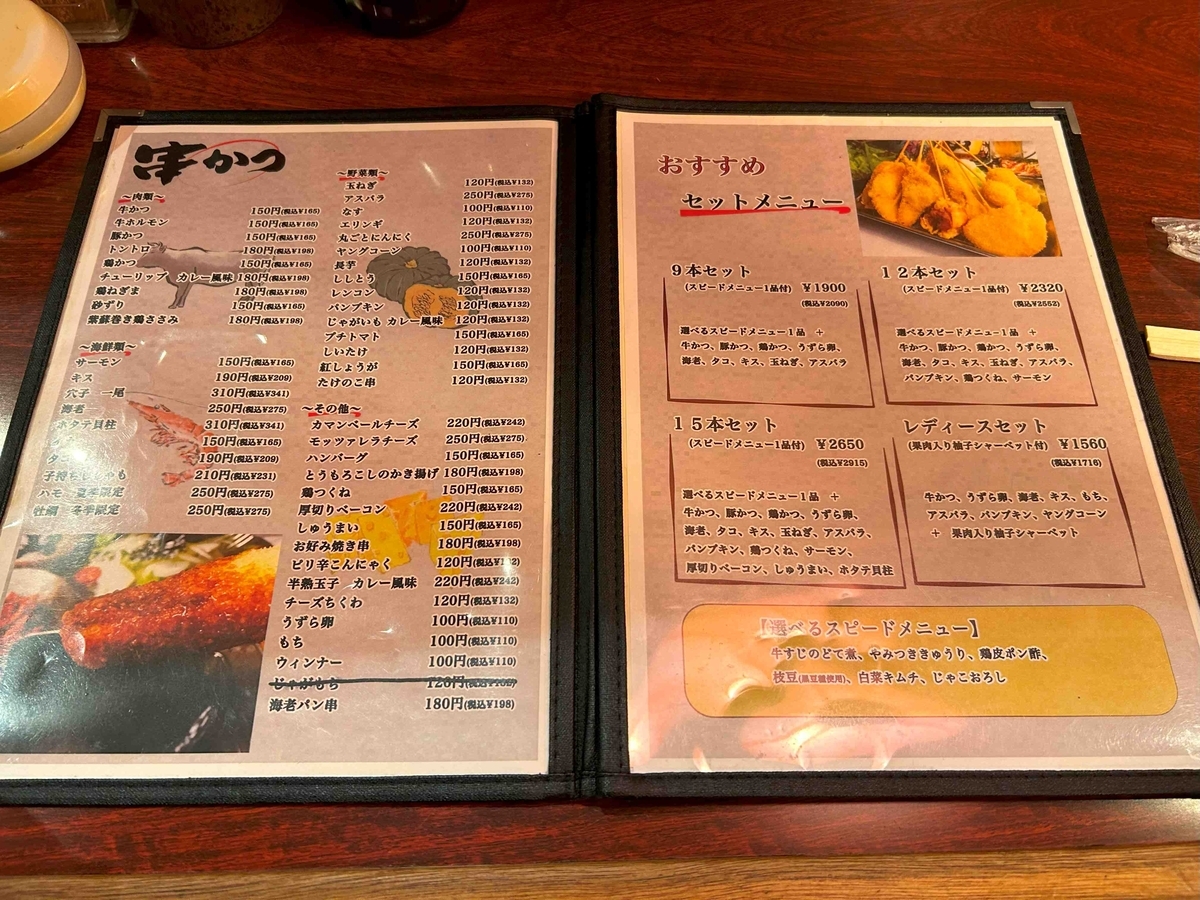 串かつ
～肉類～
牛かつ 150円(税込¥165)
牛ホルモン 150円(税込¥165)
豚かつ 150円(税込¥165)
トントロ 180円(税込¥198)
鶏かつ 150円(税込¥165)
チューリップ カレー風味 180円(税込¥198)
鶏ねぎま 180円(税込¥198)
砂ずり 150円(税込¥165)
紫蘇巻き鶏ささみ 180円(税込¥198)
～海鮮類～
サーモン 150円(税込¥165)
キス 190円(税込¥209)
穴子 一尾 310円(税込¥341)
海老 250円(税込¥275)
ホタテ貝柱 310円(税込¥341)
150円(税込¥165)
タコ 190円(税込¥209)
子持ちししゃも 210円(税込¥231)
ハモ 夏季限定 250円(税込¥275)
牡蠣 冬季限定 250円(税込¥275)
～野菜類～
玉ねぎ 120円(税込¥132)
アスパラ 250円(税込¥275)
なす 100円(税込¥110)
エリンギ 120円(税込¥132)
丸ごとにんにく 250円(税込¥275)
ヤングコーン 100円(税込¥110)
長芋 120円(税込¥132)
ししとう 150円(税込¥165)
レンコン 120円(税込¥132)
パンプキン 120円(税込¥132)
じゃがいも カレー風味 120円(税込¥132)
プチトマト 150円(税込¥165)
しいたけ 120円(税込¥132)
紅しょうが 150円(税込¥165)
たけのこ串 120円(税込¥132)
～その他～
カマンベールチーズ 220円(税込¥242)
モッツァレラチーズ 250円(税込¥275)
ハンバーグ 150円(税込¥165)
とうもろこしのかき揚げ 180円(税込¥198)
鶏つくね 150円(税込¥165)
厚切りベーコン 220円(税込¥242)
しゅうまい 150円(税込¥165)
お好み焼き串 180円(税込¥198)
ピリ辛こんにゃく 120円(税込¥132)
半熟玉子 カレー風味 220円(税込¥242)
チーズちくわ 120円(税込¥132)
うずら卵 100円(税込¥110)
もち 100円(税込¥110)
ウィンナー 100円(税込¥110)
じゃがもち 120円(税込¥132)
海老パン串 180円(税込¥198)
おすすめ
セットメニュー
９本セット
(スピードメニュー1品付) ¥1900
(税込¥2090)
選べるスピードメニュー１品 ＋
牛かつ、豚かつ、鶏かつ、うずら卵、
海老、タコ、キス、玉ねぎ、アスパラ
１２本セット
(スピードメニュー1品付) ¥2320
(税込¥2552)
選べるスピードメニュー１品 ＋
牛かつ、豚かつ、鶏かつ、うずら卵、
海老、タコ、キス、玉ねぎ、アスパラ、
パンプキン、鶏つくね、サーモン
１５本セット
(スピードメニュー1品付) ¥2650
(税込¥2915)
選べるスピードメニュー１品 ＋
牛かつ、豚かつ、鶏かつ、うずら卵、
海老、タコ、キス、玉ねぎ、アスパラ、
パンプキン、鶏つくね、サーモン、
厚切りベーコン、しゅうまい、ホタテ貝柱
レディースセット
(果肉入り柚子シャーベット付) ¥1560
(税込¥1716)
牛かつ、うずら卵、海老、キス、もち、
アスパラ、パンプキン、ヤングコーン
＋ 果肉入り柚子シャーベット
【選べるスピードメニュー】
牛すじのどて煮、やみつききゅうり、鶏皮ポン酢、
枝豆(黒豆種使用)、白菜キムチ、じゃこおろし